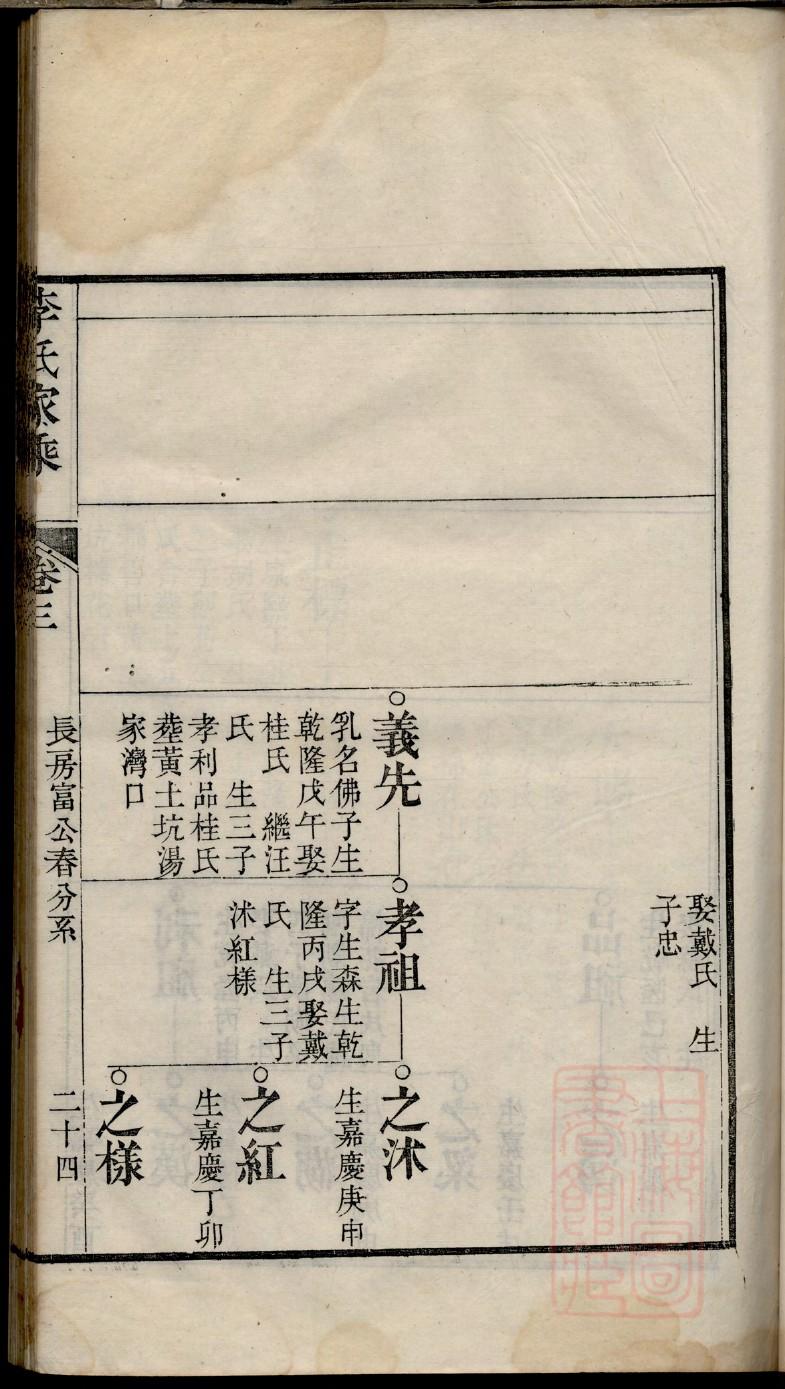 娶戴氏　生
子忠
義先
乳名佛子生
乾隆戊午娶
桂氏　繼汪
氏　生三子
孝利品桂氏
塟黃土坑湯
家灣口
孝祖
字生森生乾
隆丙戌娶戴
氏　生三子
沭紅樣
之沭
生嘉慶庚申
之紅
生嘉慶丁卯
之樣
李氏家乘
卷三
長房富公春分系
二十四